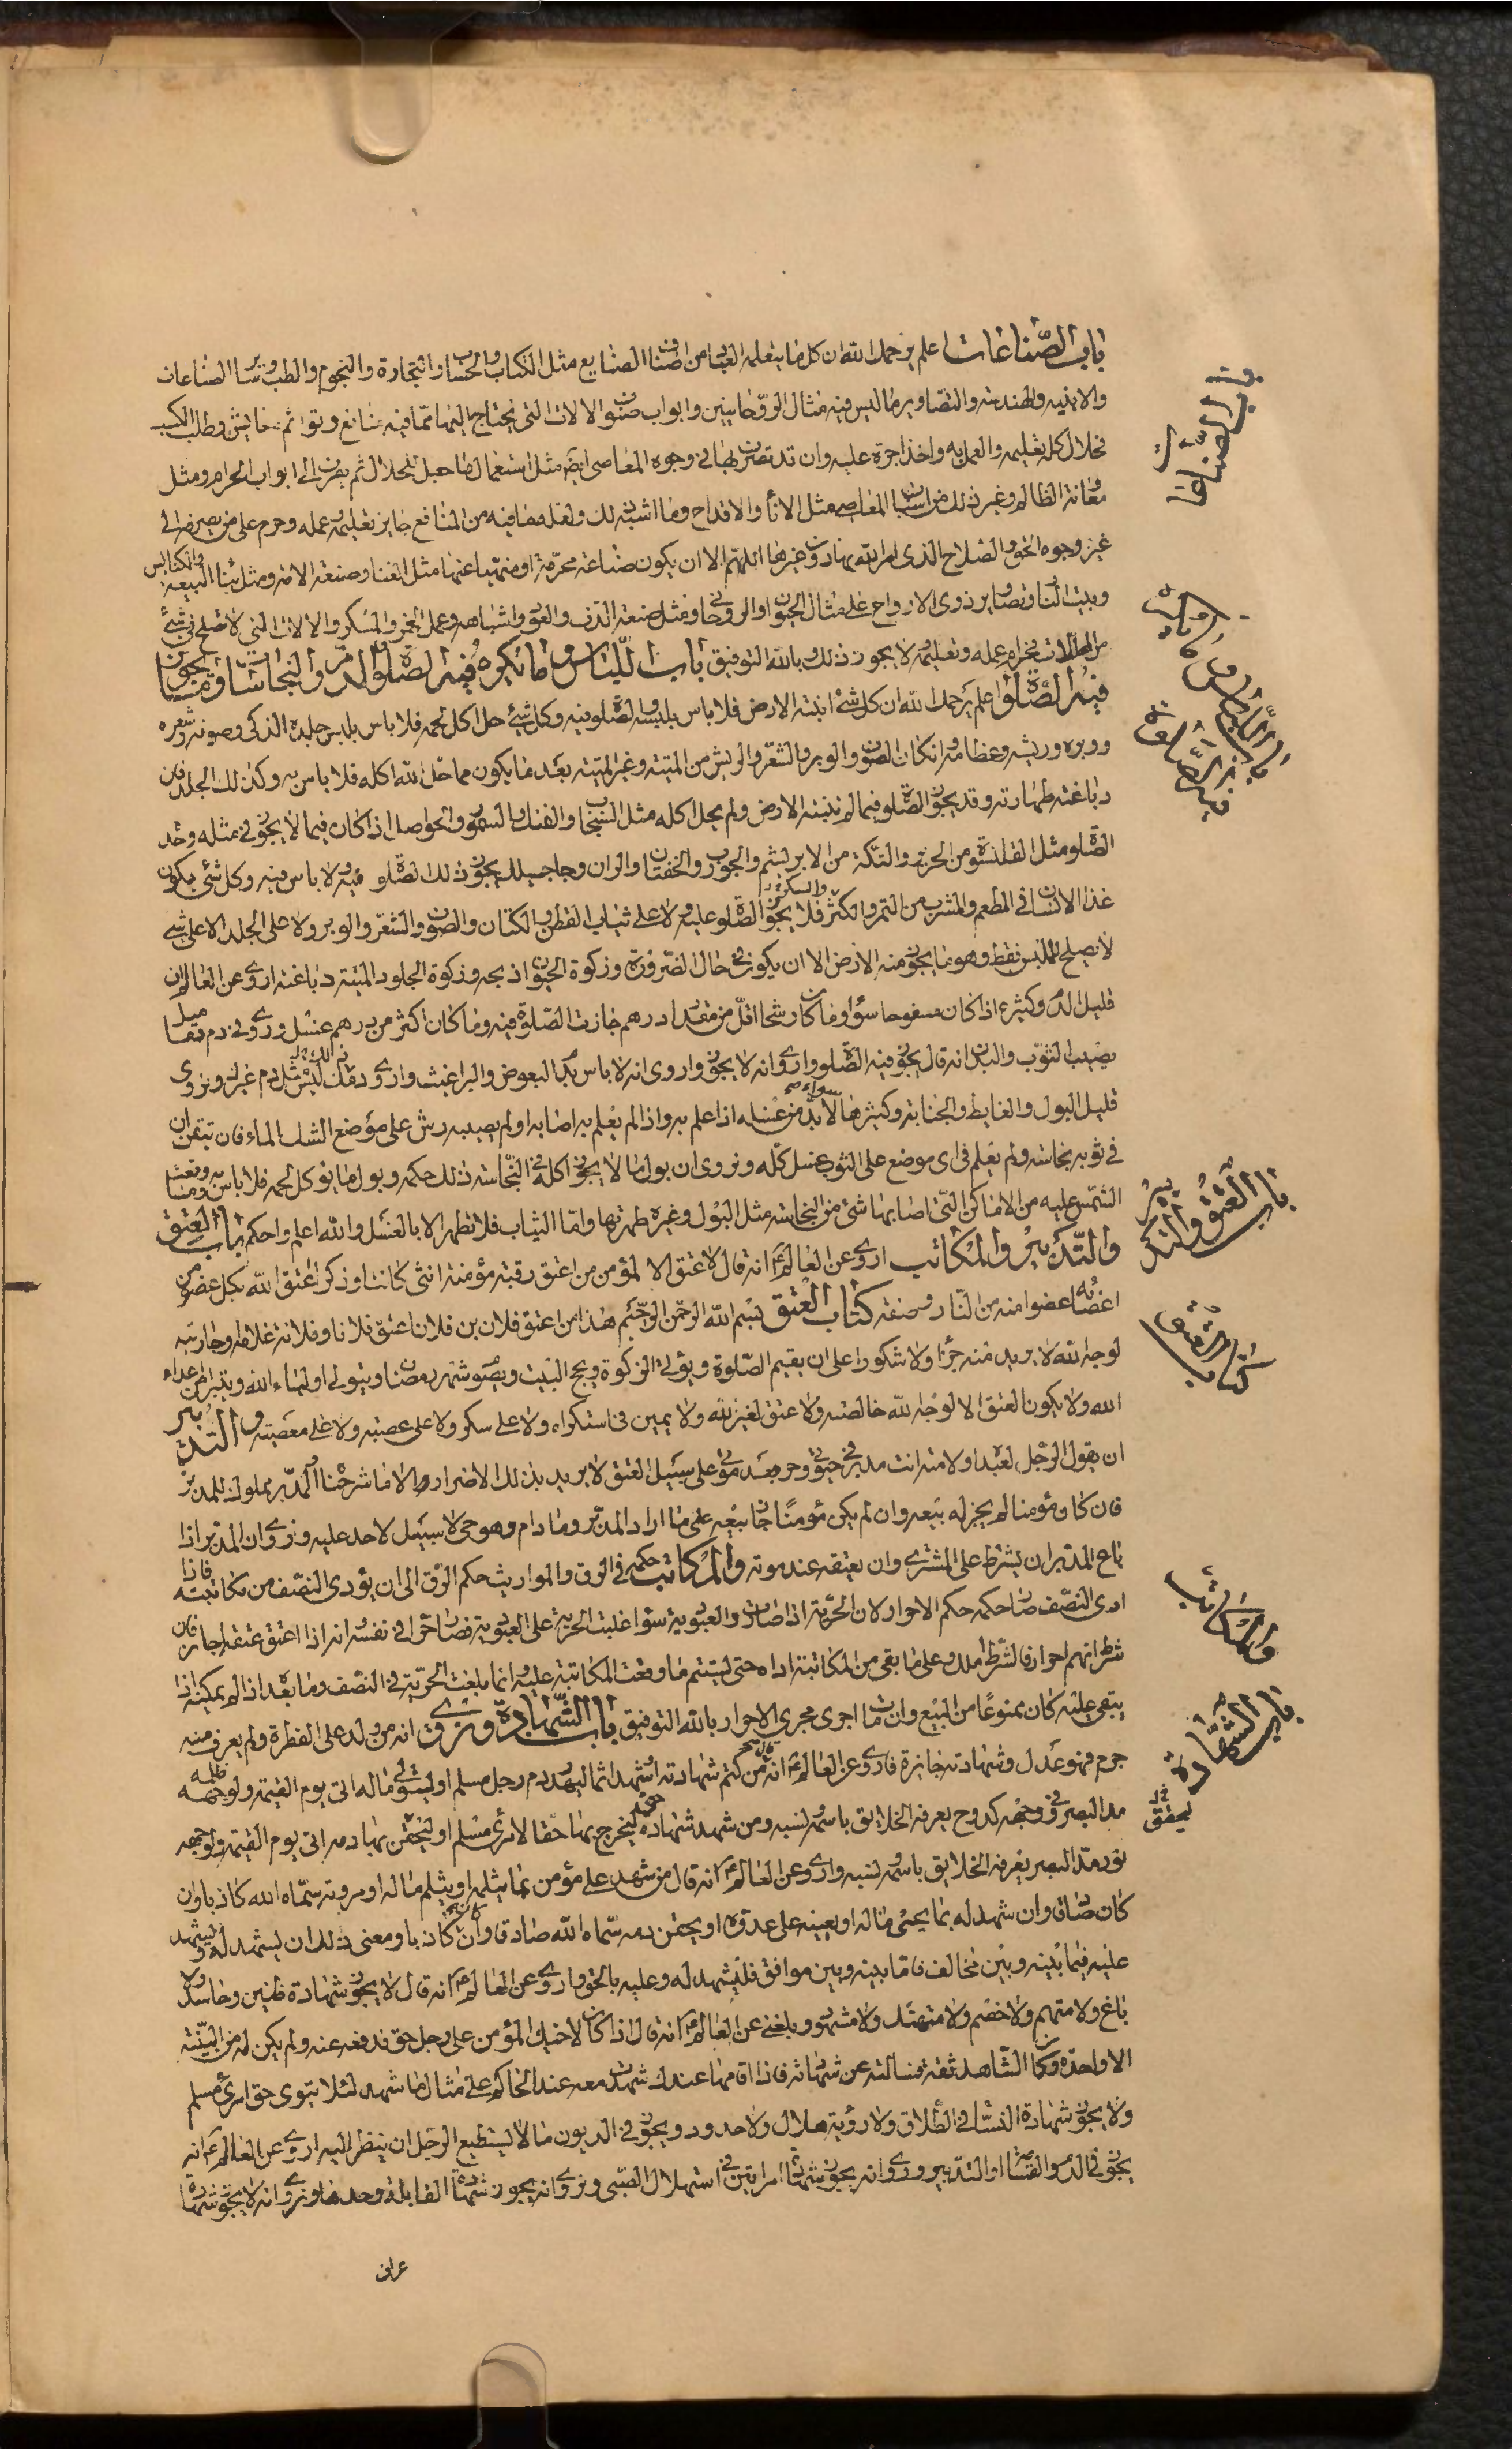 باب الصناعات اعلم يرحمك الله ان كل ما يتعلمه العباد من اصناف الصنايع مثل الكتاب والحساب والتجارة والنجوم والطب وساير الصناعات
والابنيه والهندسه والتصاوير ما ليس فيه مثال الروحانيين وابواب صنوف الالات التي يحتاج اليها مما فيه منافع وقوائم معايش وطلب الكسب
فحلال كله تعليمه والعمل به واخذ اجرة عليه وان قد تصرف بها في وجوه المعاصي ايضا مثل استعمال ما جعل للحلال ثم يصرف الى ابواب الحرام ومثل
معاونة الظالم وغير ذلك من اسباب المعاصي مثل الاناء والاقداح وما اشبه ذلك ولعلة ما فيه من المنافع جايز تعليمه وعمله وحرم على من يصرفه الى
غير وجوه الحق والصلاح الذي امر الله بها دون غيرها اللهم الا ان يكون صناعة محرمة او منهيا عنها مثل الغنا وصنعة الامه ومثل بنا البيعة والكنايس
وبيت النار وتصاوير ذوي الارواح على مثال الحيوان او الروحاني ومثل صنعة الدف والعود واشباهه وعمل الخمر والمسكر والالات التي لا تصلح في شئ
من المحللات فحرام عمله وتعليمه لا يجوز ذلك وبالله التوفيق باب اللباس وما يكره فيه الصلوة والدم والنجاسات وما يجوز
فيه الصلوة اعلم يرحمك الله ان كل شئ انبته الارض فلا باس بلبسه والصلوة فيه وكل شئ حل اكل لحمه فلا باس بلبس جلده الذكي وصوفه وشعره
ووبره وريشه وعظامه وان كان الصوف والوبر والشعر والريش من الميتة وغير الميتة بعد ما يكون مما حل الله اكله فلا باس به وكذلك الجلد فان
دباغته طهارته وقد يجوز الصلوة فيما لم تنبته الارض ولم يحل اكله مثل السنجاب والفنك والسمور والحواصل اذا كان فيما لا يجوز في مثله وحده
الصلوة مثل القلنسوة من الحرير والتكة من الابريشم والجورب والخفتان والران وجاجيلك يجوز ذلك الصلوة فيه ولا باس فيه وكل شئ يكون
غذا الانسان في المطعم والمشرب من التمر والكثر والسكر فلا يجوز الصلوة عليه ولا على ثياب القطن والكتان والصوف والشعر والوبر ولا على الجلد الا على شئ
لا يصلح للبس فقط وهو مما يخرج من الارض الا ان يكون في حال الضرورة وزكوة الحيوان اذبحه وزكوة الجلود الميتة دباغته اروي عن العالم ان
قليل الدم وكثيره اذا كان مسفوحا سواء وما كان رشحا اقل من مقدار درهم جازت الصلوة فيه وما كان اكثر من درهم غسل وروي في دم دماميل
يصيب الثوب والبدن انه قال يجوز فيه الصلوة واروي انه لا يجوز واروي انه لا باس بدم البعوض والبراغيث واروي دمك ليس مثل دم غيرك ونروي
قليل البول والغايط والجنابة وكثيرها سواء لا بد من غسله اذا علم به واذا لم يعلم به اصابه او لم يصبه رش على موضع الشك الماء فان تيقن ان
في ثوبه نجاسة ولم يعلم في اي موضع على الثوب غسل كله ونروي ان بول ما لا يجوز اكله في النجاسة ذلك حكمه وبول ما يوكل لحمه فلا باس به وما وقعت
الشمس عليه من الاماكن التي اصابها شئ من النجاسة مثل البول وغيره طهرتها واما الثياب فلا تطهر الا بالغسل والله اعلم واحكم باب العتق
والتدبير والمكاتب اروي عن العالم انه قال لا عتق الا لمؤمن من اعتق رقبة مؤمنة انثى كانت او ذكر اعتق الله بكل عضو من
اعضائه عضوا منه من النار وصفة كتاب العتق بسم الله الرحمن الرحيم هذا من اعتق فلان بن فلان اعتق فلانا وفلانة غلامه وجاريته
لوجه الله لا يريد منه جزاء ولا شكورا على ان يقيم الصلوة ويؤتي الزكوة ويحج البيت ويصوم شهر رمضان ويتولى اولياء الله ويتبرا من اعداء
الله ولا يكون العتق الا لوجه الله خالصة ولا عتق لغير الله ولا يمين في استكراه ولا على سكر ولا على عصبية ولا على معصية والتدبير
ان يقول الرجل لعبده او لامته انت مدبر في حيوتي وحر بعد موتي على سبيل العتق لا يريد بذلك الاضرار والا ما شرحناه المدبر مملوك للمدبر
فان كان مؤمنا لم يجز له بيعه وان لم يكن مؤمنا جاز بيعه على ما اراد المدبر وما دام وهو حي لا سبيل لاحد عليه ونروي ان المدبر اذا
باع المدبر ان يشترط على المشتري وان يعتقه عند موته والمكاتب حكمه في الرق والمواريث حكم الرق الى ان يؤدي النصف من مكاتبته فاذا
ادى النصف صار حكمه حكم الاحرار لان الحرية اذا صارت والعبودية سواء غلبت الحرية على العبودية فصار حرا في نفسه انه اذا اعتق عتقه جاز فان
شرط انهم احرار فالشرط املك وعلى ما بقي من المكاتبة اداه حتى يستتم ما وقعت المكاتبة عليه وانما بلغت الحرية في النصف وما بعد اذا لم يمكنه اذا
يبقى عليه كان ممنوعا من البيع وان مات اجري مجرى الاحرار بالله التوفيق باب الشهادة ونروي انه من ولد على الفطرة ولم يعرف منه
جرم فهو عدل وشهادته جايزة فاروي عن العالم انه قال من كتم شهادته او شهد اثما ليهدر دم رجل مسلم او ليتوى ماله اتى يوم القيمة ولوجهه ظلمة
مد البصر وفي وجهه كدوح يعرفه الخلايق باسمه ونسبه ومن شهد شهادة حق ليخرج بها حقا لامرئ مسلم او ليحقن بها دمه اتى يوم القيمة ولوجهه
نور مد البصر يعرفه الخلايق باسمه ونسبه واروي عن العالم انه قال من شهد على مؤمن بما يثلمه او يثلم ماله او مروته سماه الله كاذبا وان
كان صادقا وان شهد له بما يحيي ماله او يعينه على عدوه او يحقن دمه سماه الله صادقا وان كان كاذبا ومعنى ذلك ان يشهد له ويشهد
عليه فيما بينه وبين مخالف فاما بينه وبين موافق فليشهد له وعليه بالحق واروي عن العالم انه قال لا يجوز شهادة ظنين وحاسد ولا
باغ ولا متهم ولا خصم ولا متهتك ولا مشهور وبلغني عن العالم انه قال اذا كان لاخيك المؤمن على رجل حق فدفعه عنه ولم يكن له من البينة
الا واحدة وكان الشاهد ثقة فسالته عن شهادته فاذا اقامها عندك شهدت معه عند الحاكم على مثال ما شهد لئلا يتوى حق امرئ مسلم
ولا يجوز شهادة النساء في الطلاق ولا رؤية هلال ولا حدود ويجوز في الديون وما لا يستطيع الرجل ان ينظر اليه اروي عن العالم انه
يجوز في الدم والقسامة والتدبير وروي انه يجوز شهادة امراتين في استهلال الصبي ونروي انه يجوز شهادة القابلة وحدها ونروي انه لا يجوز شهادة
عراف
باب الصناعات
باب اللباس وما يكره
فيه الصلوة
باب العتق والتدبير
كتاب العتق
والمكاتب
باب الشهادة
ليحقق